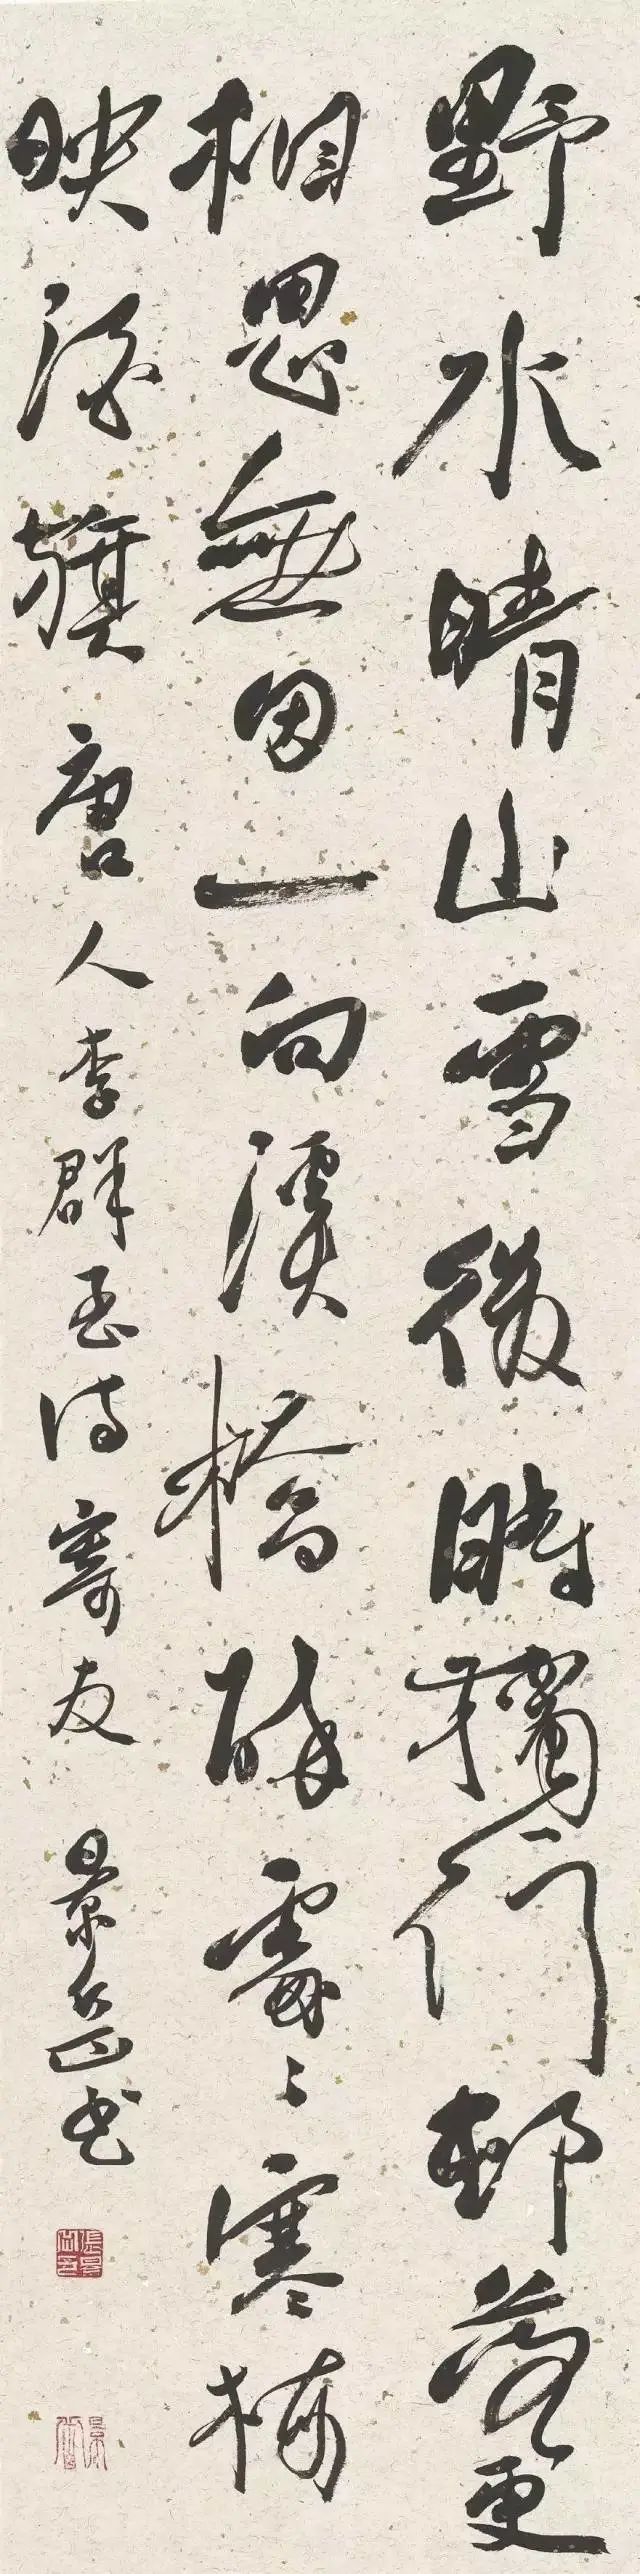 野水晴山雪後時獨行邨落更
相思無因一向溪橋醉處〻寒梅
映酒旗 唐人李群玉詩寄友 景岳書